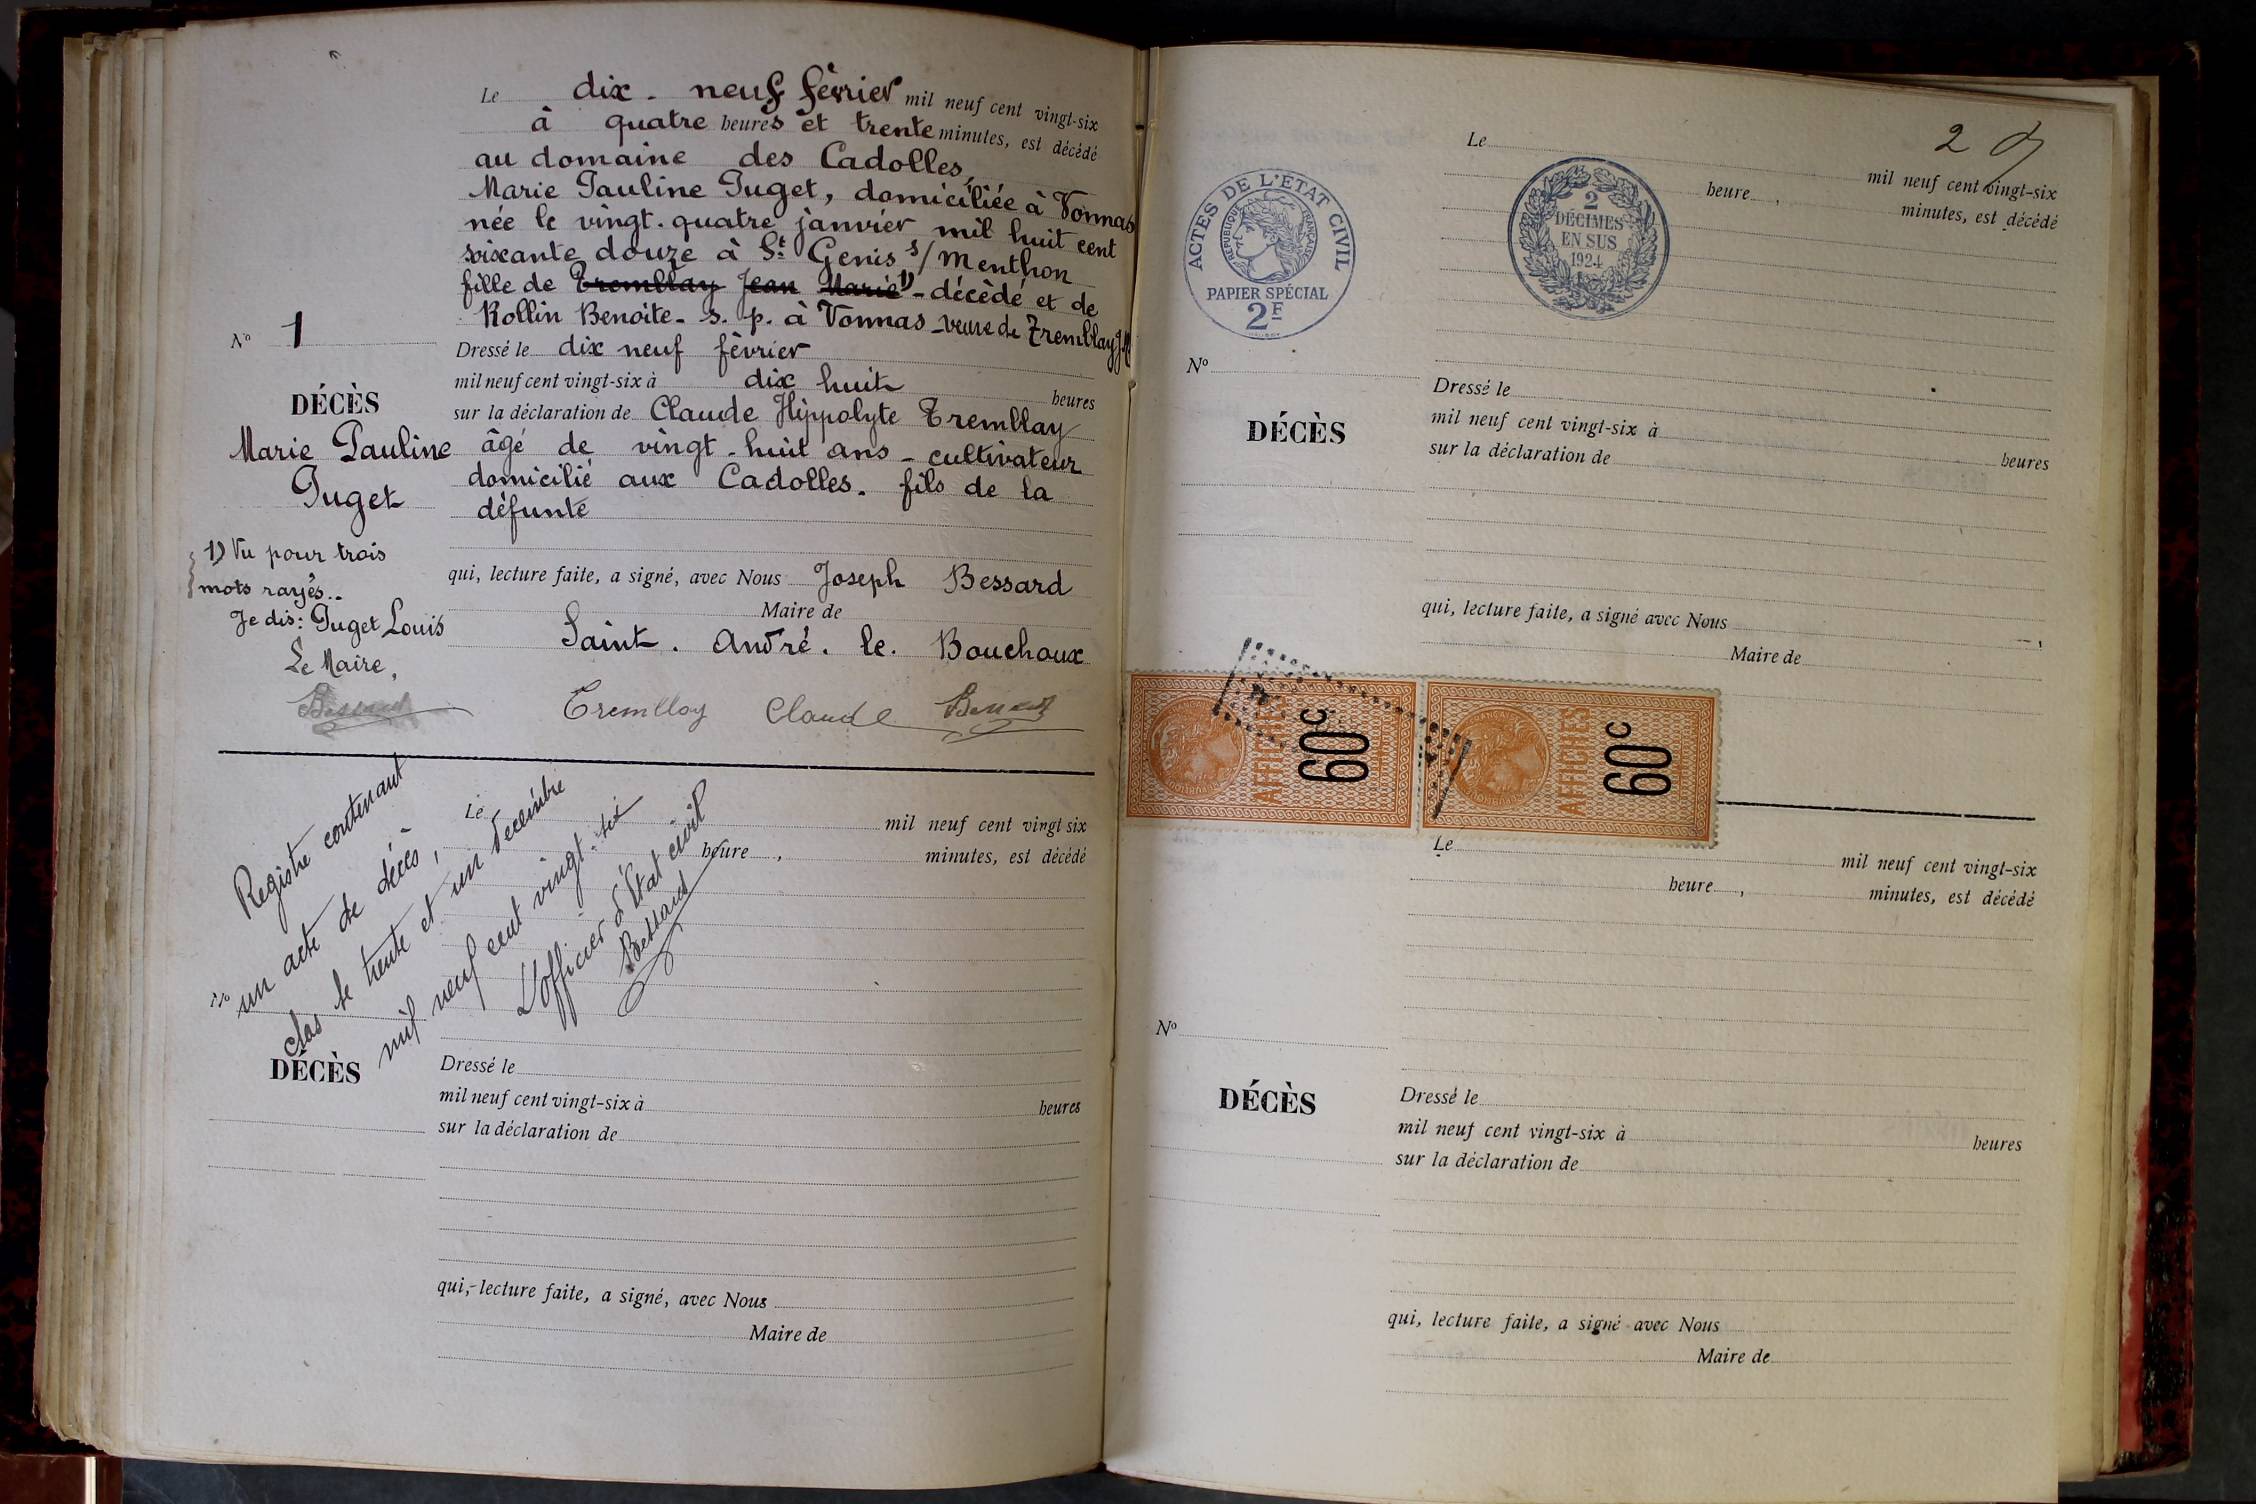 Le dix. neuf février mil neuf cent vingt-six
à quatre heures et trente minutes, est décédé
au domaine des Cadolles,
Marie Pauline Puget, domiciliée à Vonnas
née le vingt. quatre janvier mil huit cent
soixante douze à St Genis s/Menthon
fille de Tremblay Jean Marie 1) - décédé et de
Rollin Benoite - s. p. à Vonnas - veuve de Tremblay J.M
Dressé le dix neuf février
mil neuf cent vingt-six à dix huit heures
sur la déclaration de Claude Hippolyte Tremblay
âgé de vingt - huit ans - cultivateur
domicilié aux Cadolles. fils de la
défunte
qui, lecture faite, a signé, avec Nous Joseph Bessard
Maire de
Saint. André. le. Bouchoux
Tremblay Claude Bessard
No 1
DÉCÈS
Marie Pauline
Puget
1) Vu pour trois
mots rayés..
Je dis: Puget Louis
Le Maire,
Bessard
Registre contenant
un acte de décès,
clos le trente et un décembre
mil neuf cent vingt. six
L'officier d'Etat civil
Bessard
Le mil neuf cent vingt six
heure , minutes, est décédé
No
DÉCÈS
Dressé le
mil neuf cent vingt-six à heures
sur la déclaration de
qui, lecture faite, a signé, avec Nous
Maire de
2
ACTES DE L'ÉTAT CIVIL
RÉPUBLIQUE FRANÇAISE
PAPIER SPÉCIAL
2F
2
DÉCIMES
EN SUS
1924
Le mil neuf cent vingt-six
heure , minutes, est décédé
No
DÉCÈS
Dressé le
mil neuf cent vingt-six à
sur la déclaration de heures
qui, lecture faite, a signé avec Nous ,
Maire de
AFFICHES
60c
AFFICHES
60c
Le mil neuf cent vingt-six
heure , minutes, est décédé
No
DÉCÈS
Dressé le
mil neuf cent vingt-six à heures
sur la déclaration de
qui, lecture faite, a signé avec Nous
Maire de